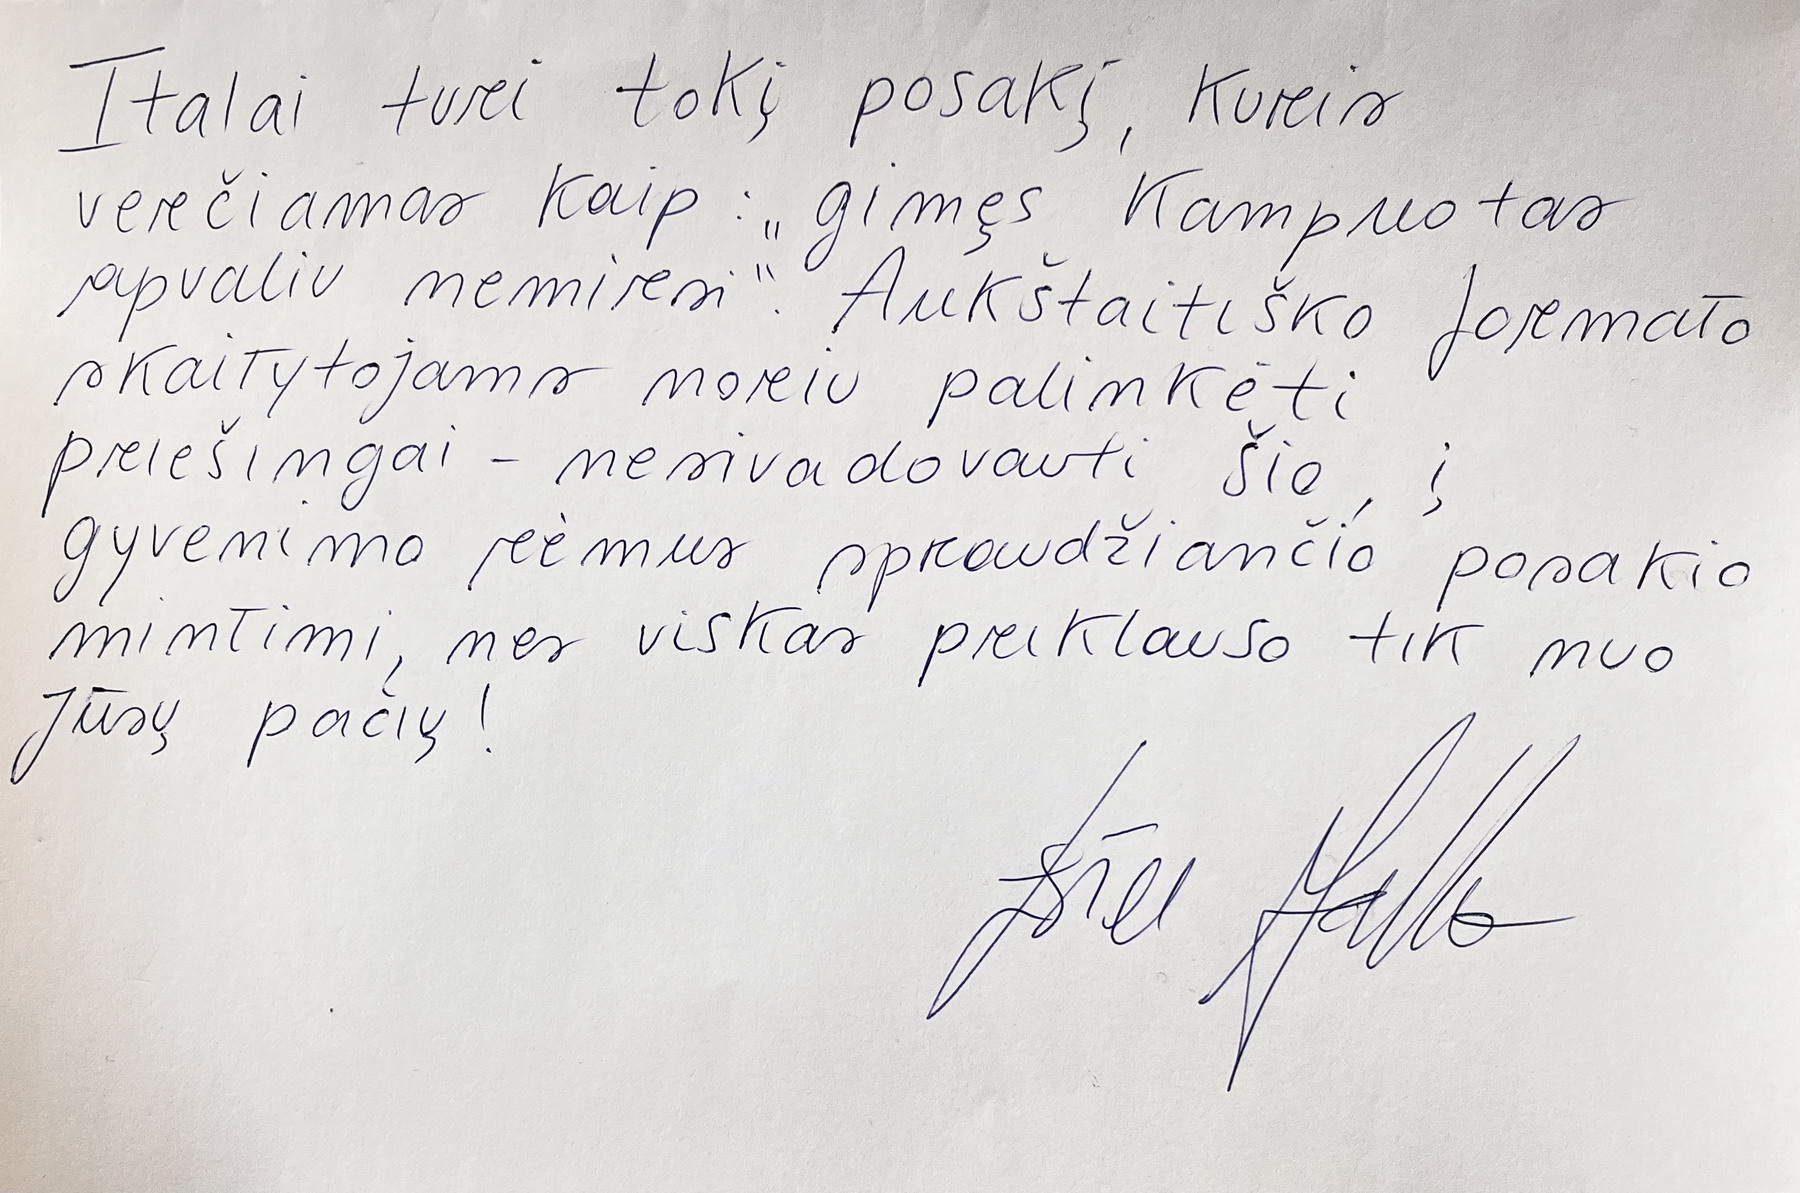 Italai turi tokį posakį, kuris
verčiamas kaip: „gimęs kampuotas
apvaliu nemirsi“. Aukštaitiško formato
skaitytojams noriu palinkėti
priešingai – nesivadovauti šio, į
gyvenimo rėmus spraudžiančio posakio
mintimi, nes viskas priklauso tik nuo
Jūsų pačių!